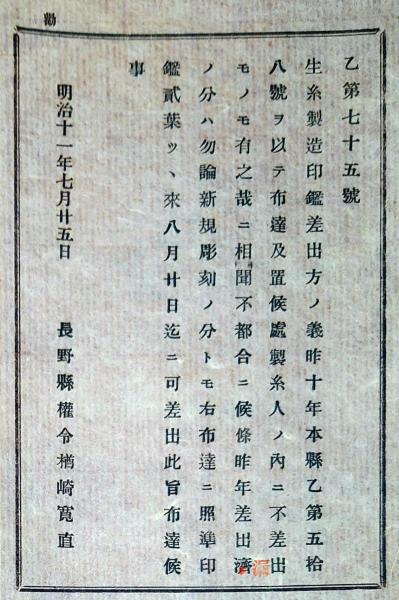 勸
乙第七十五號
生糸製造印鑑差出方ノ義昨十年本縣乙第五拾
八號ヲ以テ布達及置候處製糸人ノ內ニ不差出
モノモ有之哉ニ相聞不都合ニ候條昨年差出濟
ノ分ハ勿論新規彫刻ノ分トモ右布達ニ照準印
鑑貳葉ツヽ來八月廿日迄ニ可差出此旨布達候
事
明治十一年七月廿五日 長野縣權令楢崎寬直